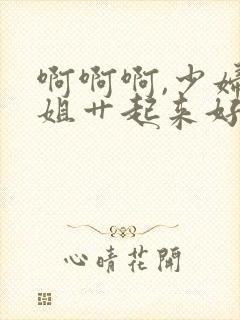 啊啊啊,少婦
姐艹起来好
心晴花開